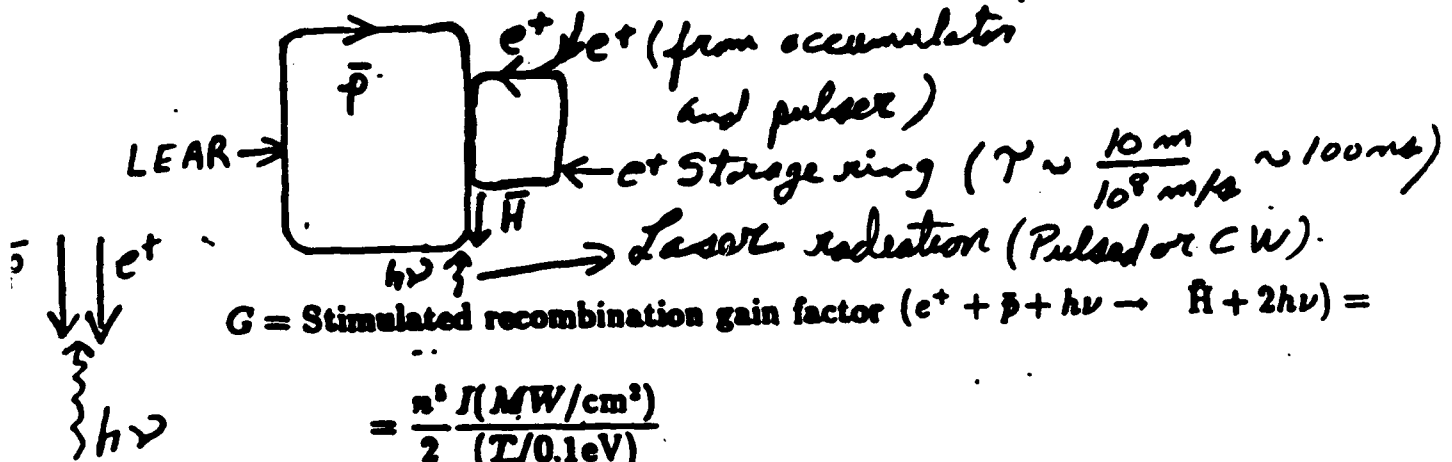 e⁺ e⁺ (from accumulator
and pulser)
p̄
LEAR →
← e⁺ Storage ring (τ ~ 10 m / 10⁸ m/s ~ 100 ns)
H̄
hν → Laser radiation (Pulsed or CW).
p̄ e⁺
G = Stimulated recombination gain factor (e⁺ + p̄ + hν → H̄ + 2hν) =
hν
= n⁵/2 I(MW/cm²)/(T/0.1eV)